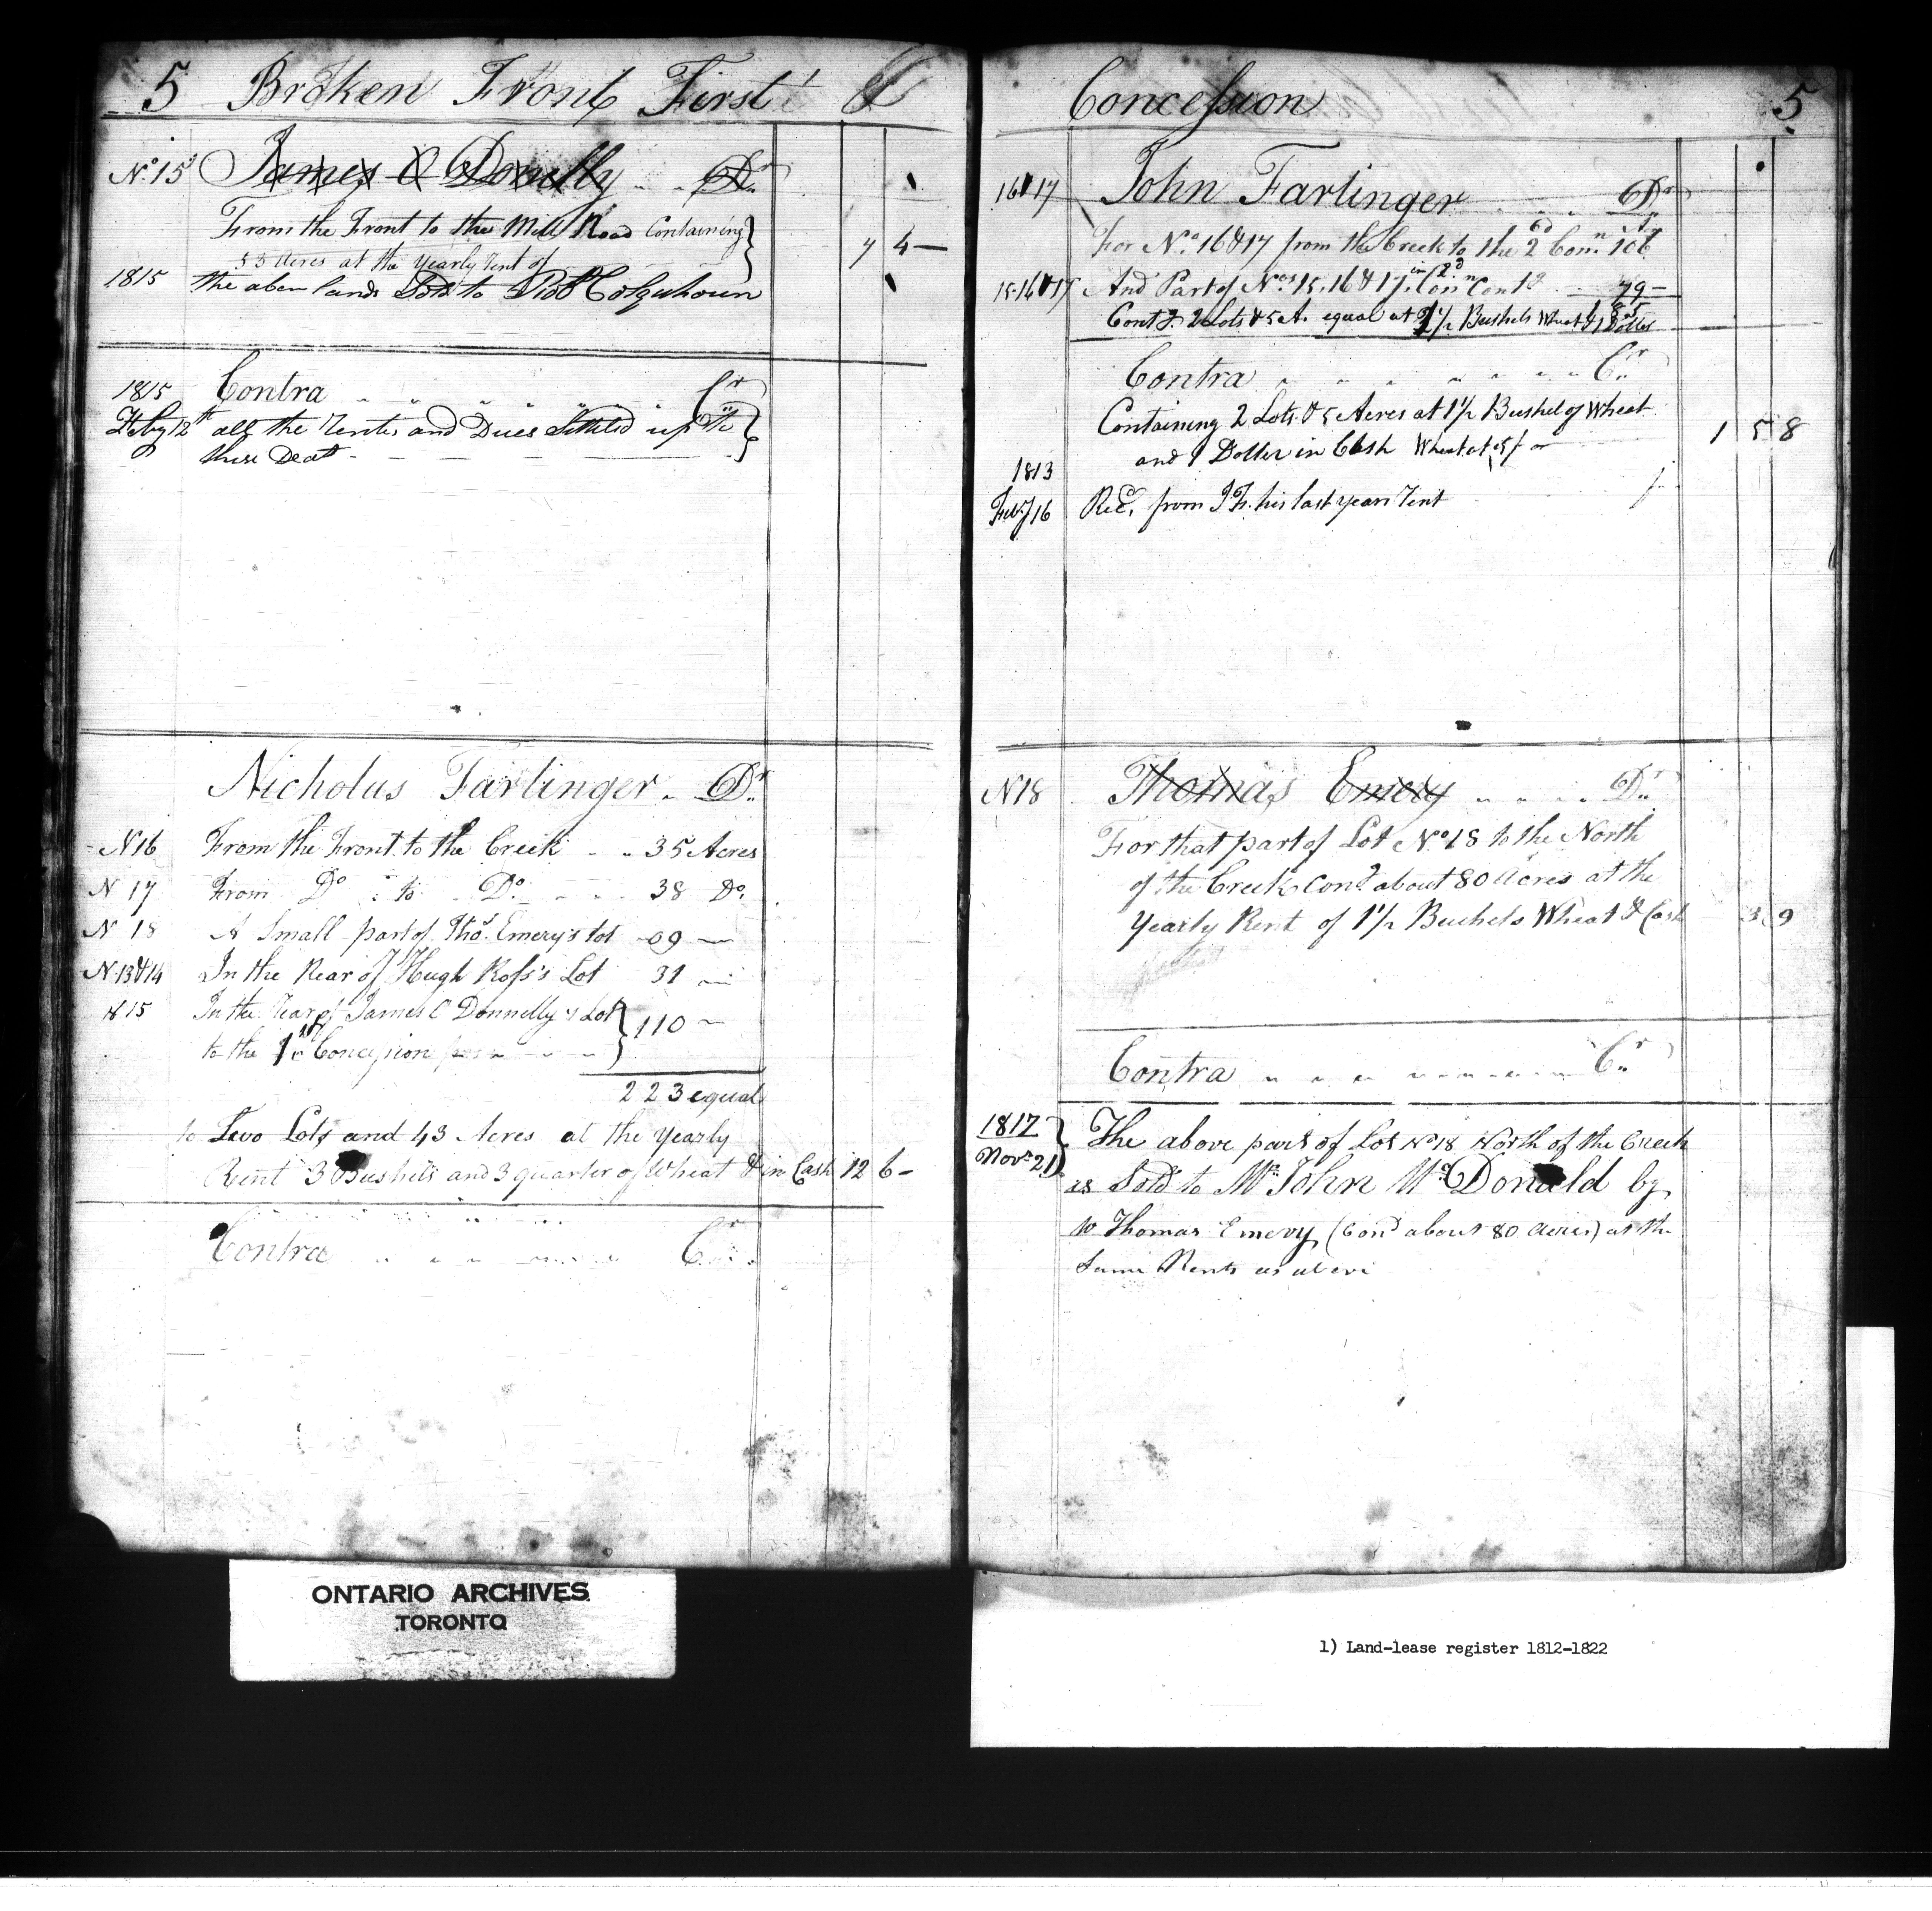 5 Broken Front First
No. 15 James O Donnelly Dr
From the Front to the Mill Road Containing
53 Acres at the Yearly rent of 7 4 —
1815 the above lands Sold to Robt Colquhoun
1815 Contra Cr
Feby 12th all the Rents and Dues Settled up to
these Deat
Nicholus Farlinger Dr
N 16 From the Front to the Creek 35 Acres
N 17 From Do to Do 38 Do
N 18 A Small part of Thos. Emery's lot 09 —
N. 13 & 14 In the Rear of Hugh Ross's Lot 31 —
& 15 In the rear of James O Donnelly's Lot
to the 1st Concession 110 —
223 equal
to Two Lots and 43 Acres at the yearly
Rent 3 Bushels and 3 quarter of Wheat & in Cash 12 6 —
Contra Cr
Concession 5
16 & 17 John Farlinger Dr
For No. 16 & 17 from the Creek to the 2d Con. 106
15. 16 & 17 And Part of Nos 15. 16 & 17 in 2d Con Contd 79 —
Contg. 2 Lots & 5 A. equal at 1 1/2 Bushels Wheat & 1 Doller
Contra Cr
Containing 2 Lots & 5 Acres at 1 1/2 Bushel of Wheat
and 1 Doller in Cash Wheat at 5/ 1 5 8
1813
Feby 16 Recd. from J F. his last years rent
N 18 Thomas Emery Dr
For that part of Lot No 18 to the North
of the Creek Cond about 80 Acres at the
Yearly Rent of 1 1/2 Buchels Wheat & Cash 3 9
Contra Cr
1817 The above part of Lot No 18 North of the Creek
Novr 21 is Sold to Mr John McDonald by
to Thomas Emery (Cond about 80 Acres) at the
Same Rents as above
ONTARIO ARCHIVES
TORONTO
1) Land-lease register 1812-1822